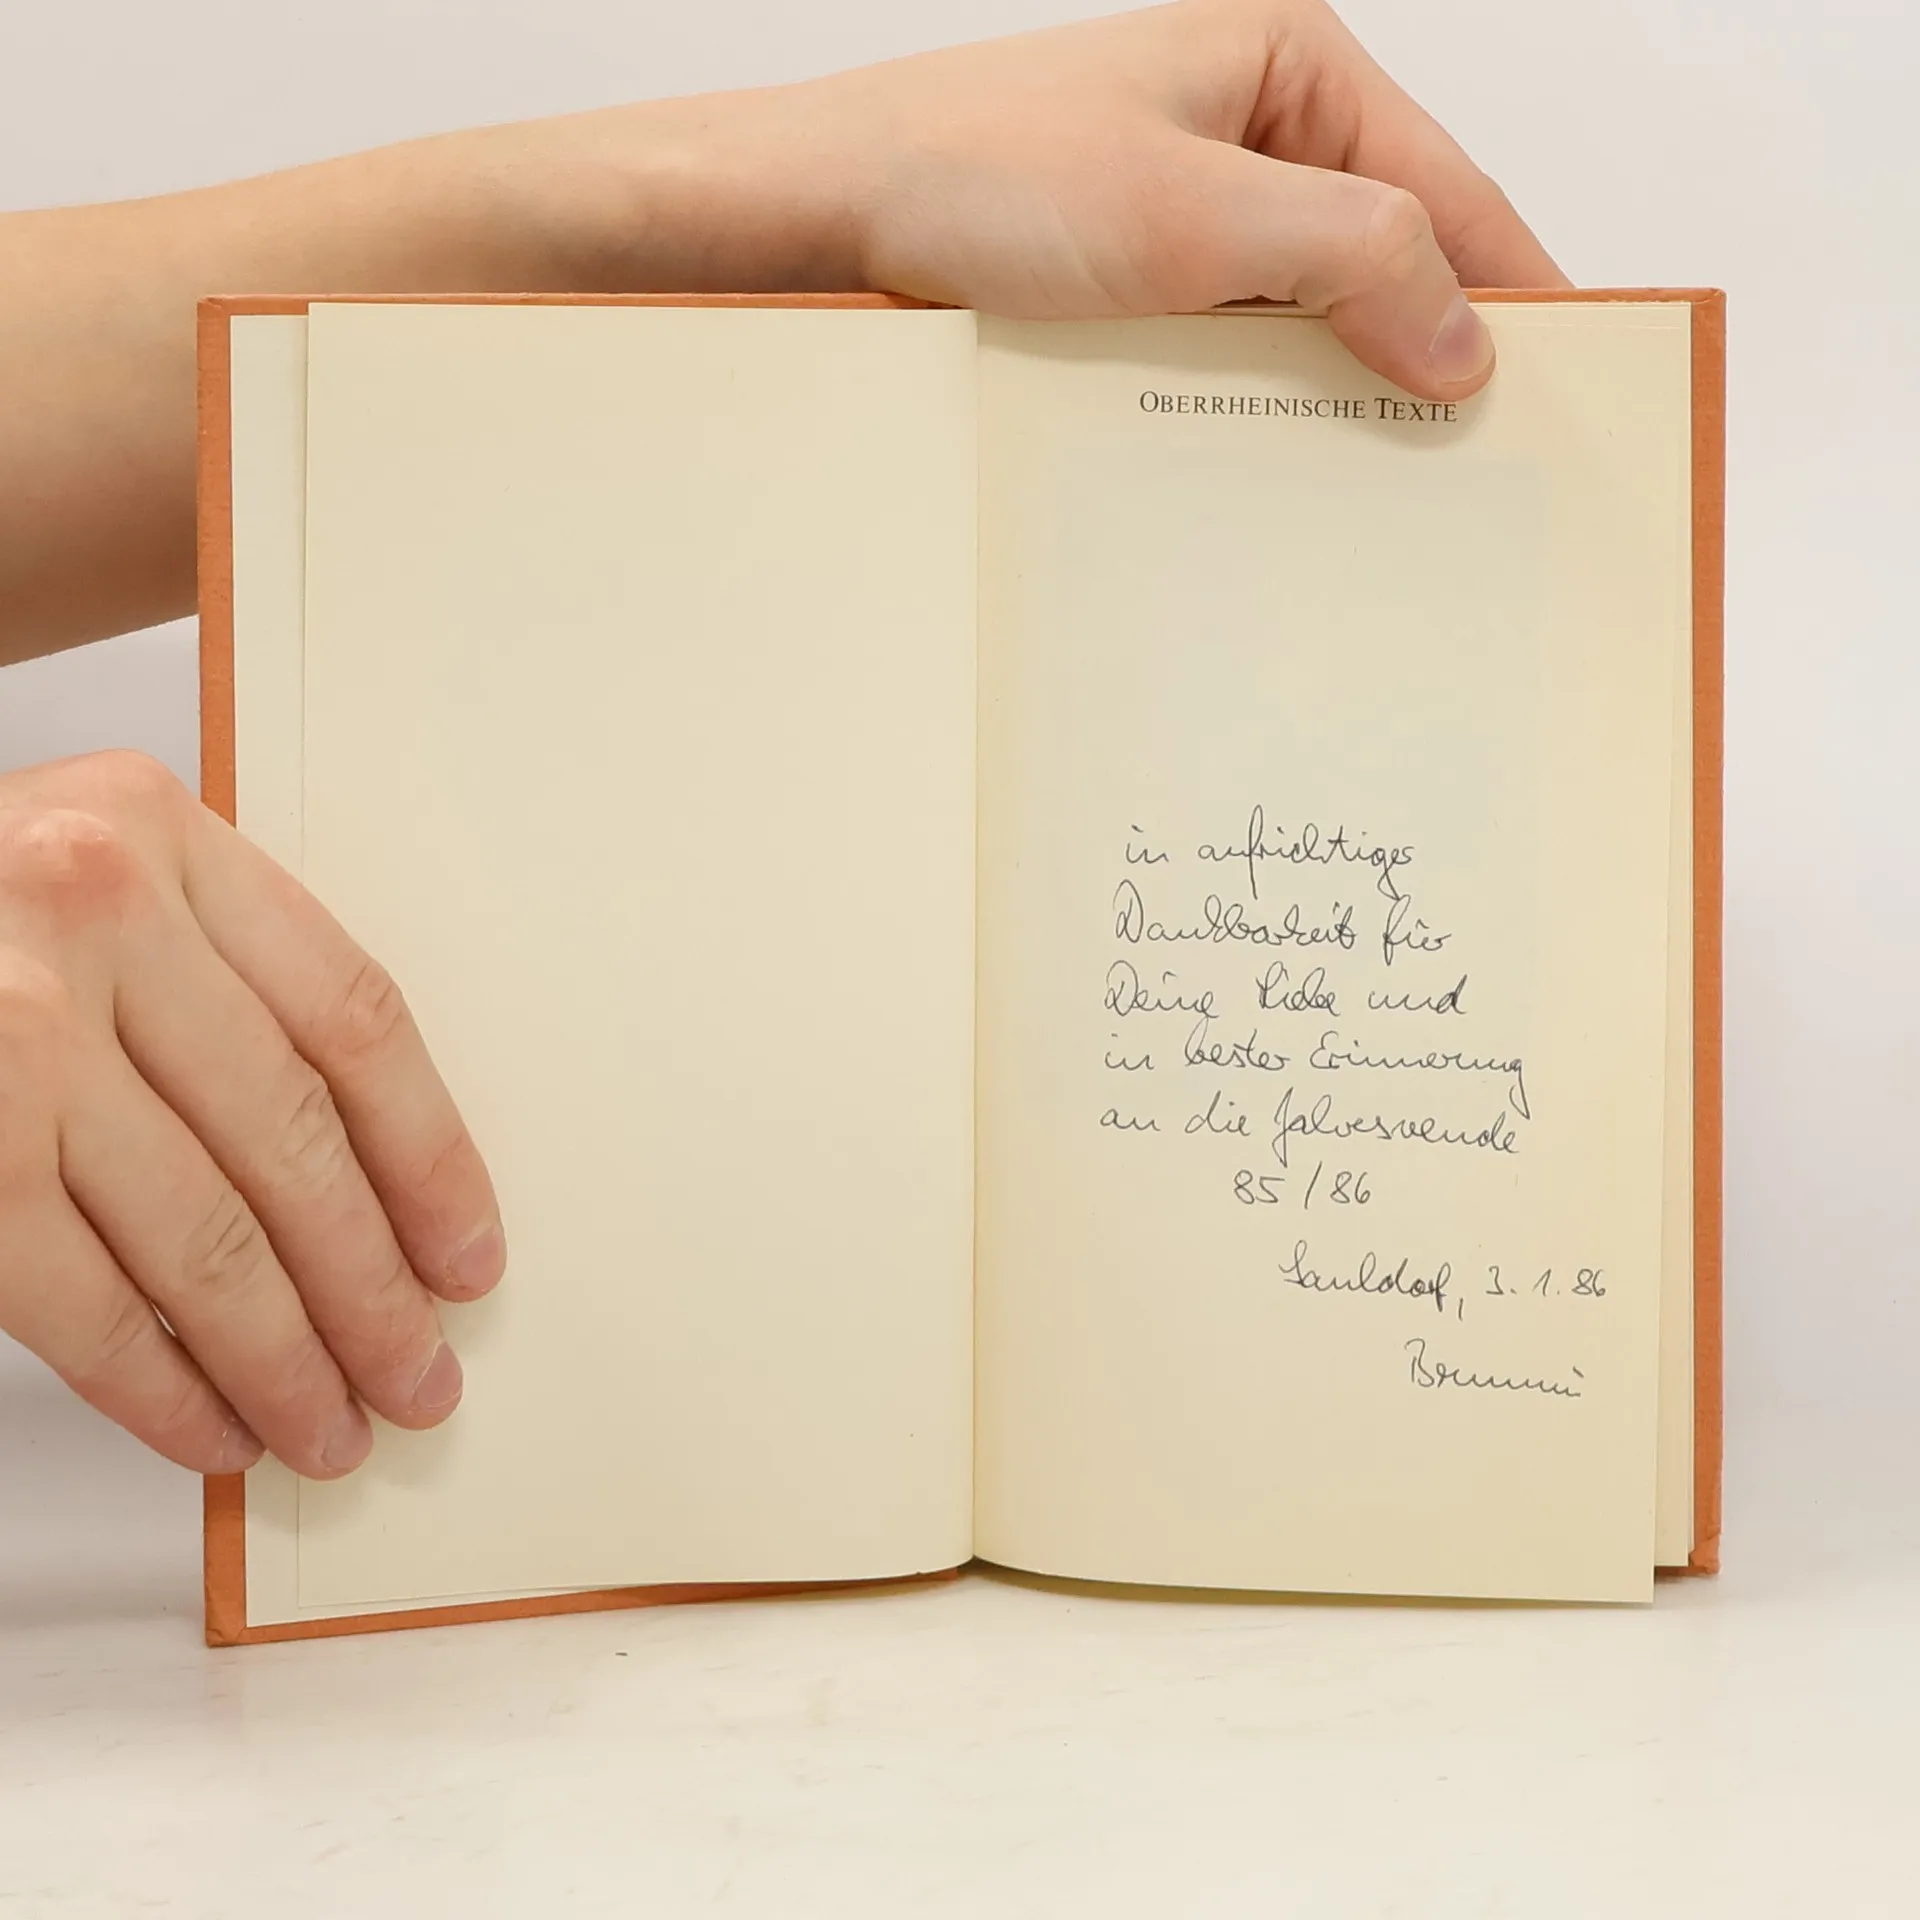 OBERRHEINISCHE TEXTE
in aufrichtiger
Dankbarkeit für
Deine Liebe und
in bester Erinnerung
an die Jahreswende
85/86
Sauldorf, 3.1.86